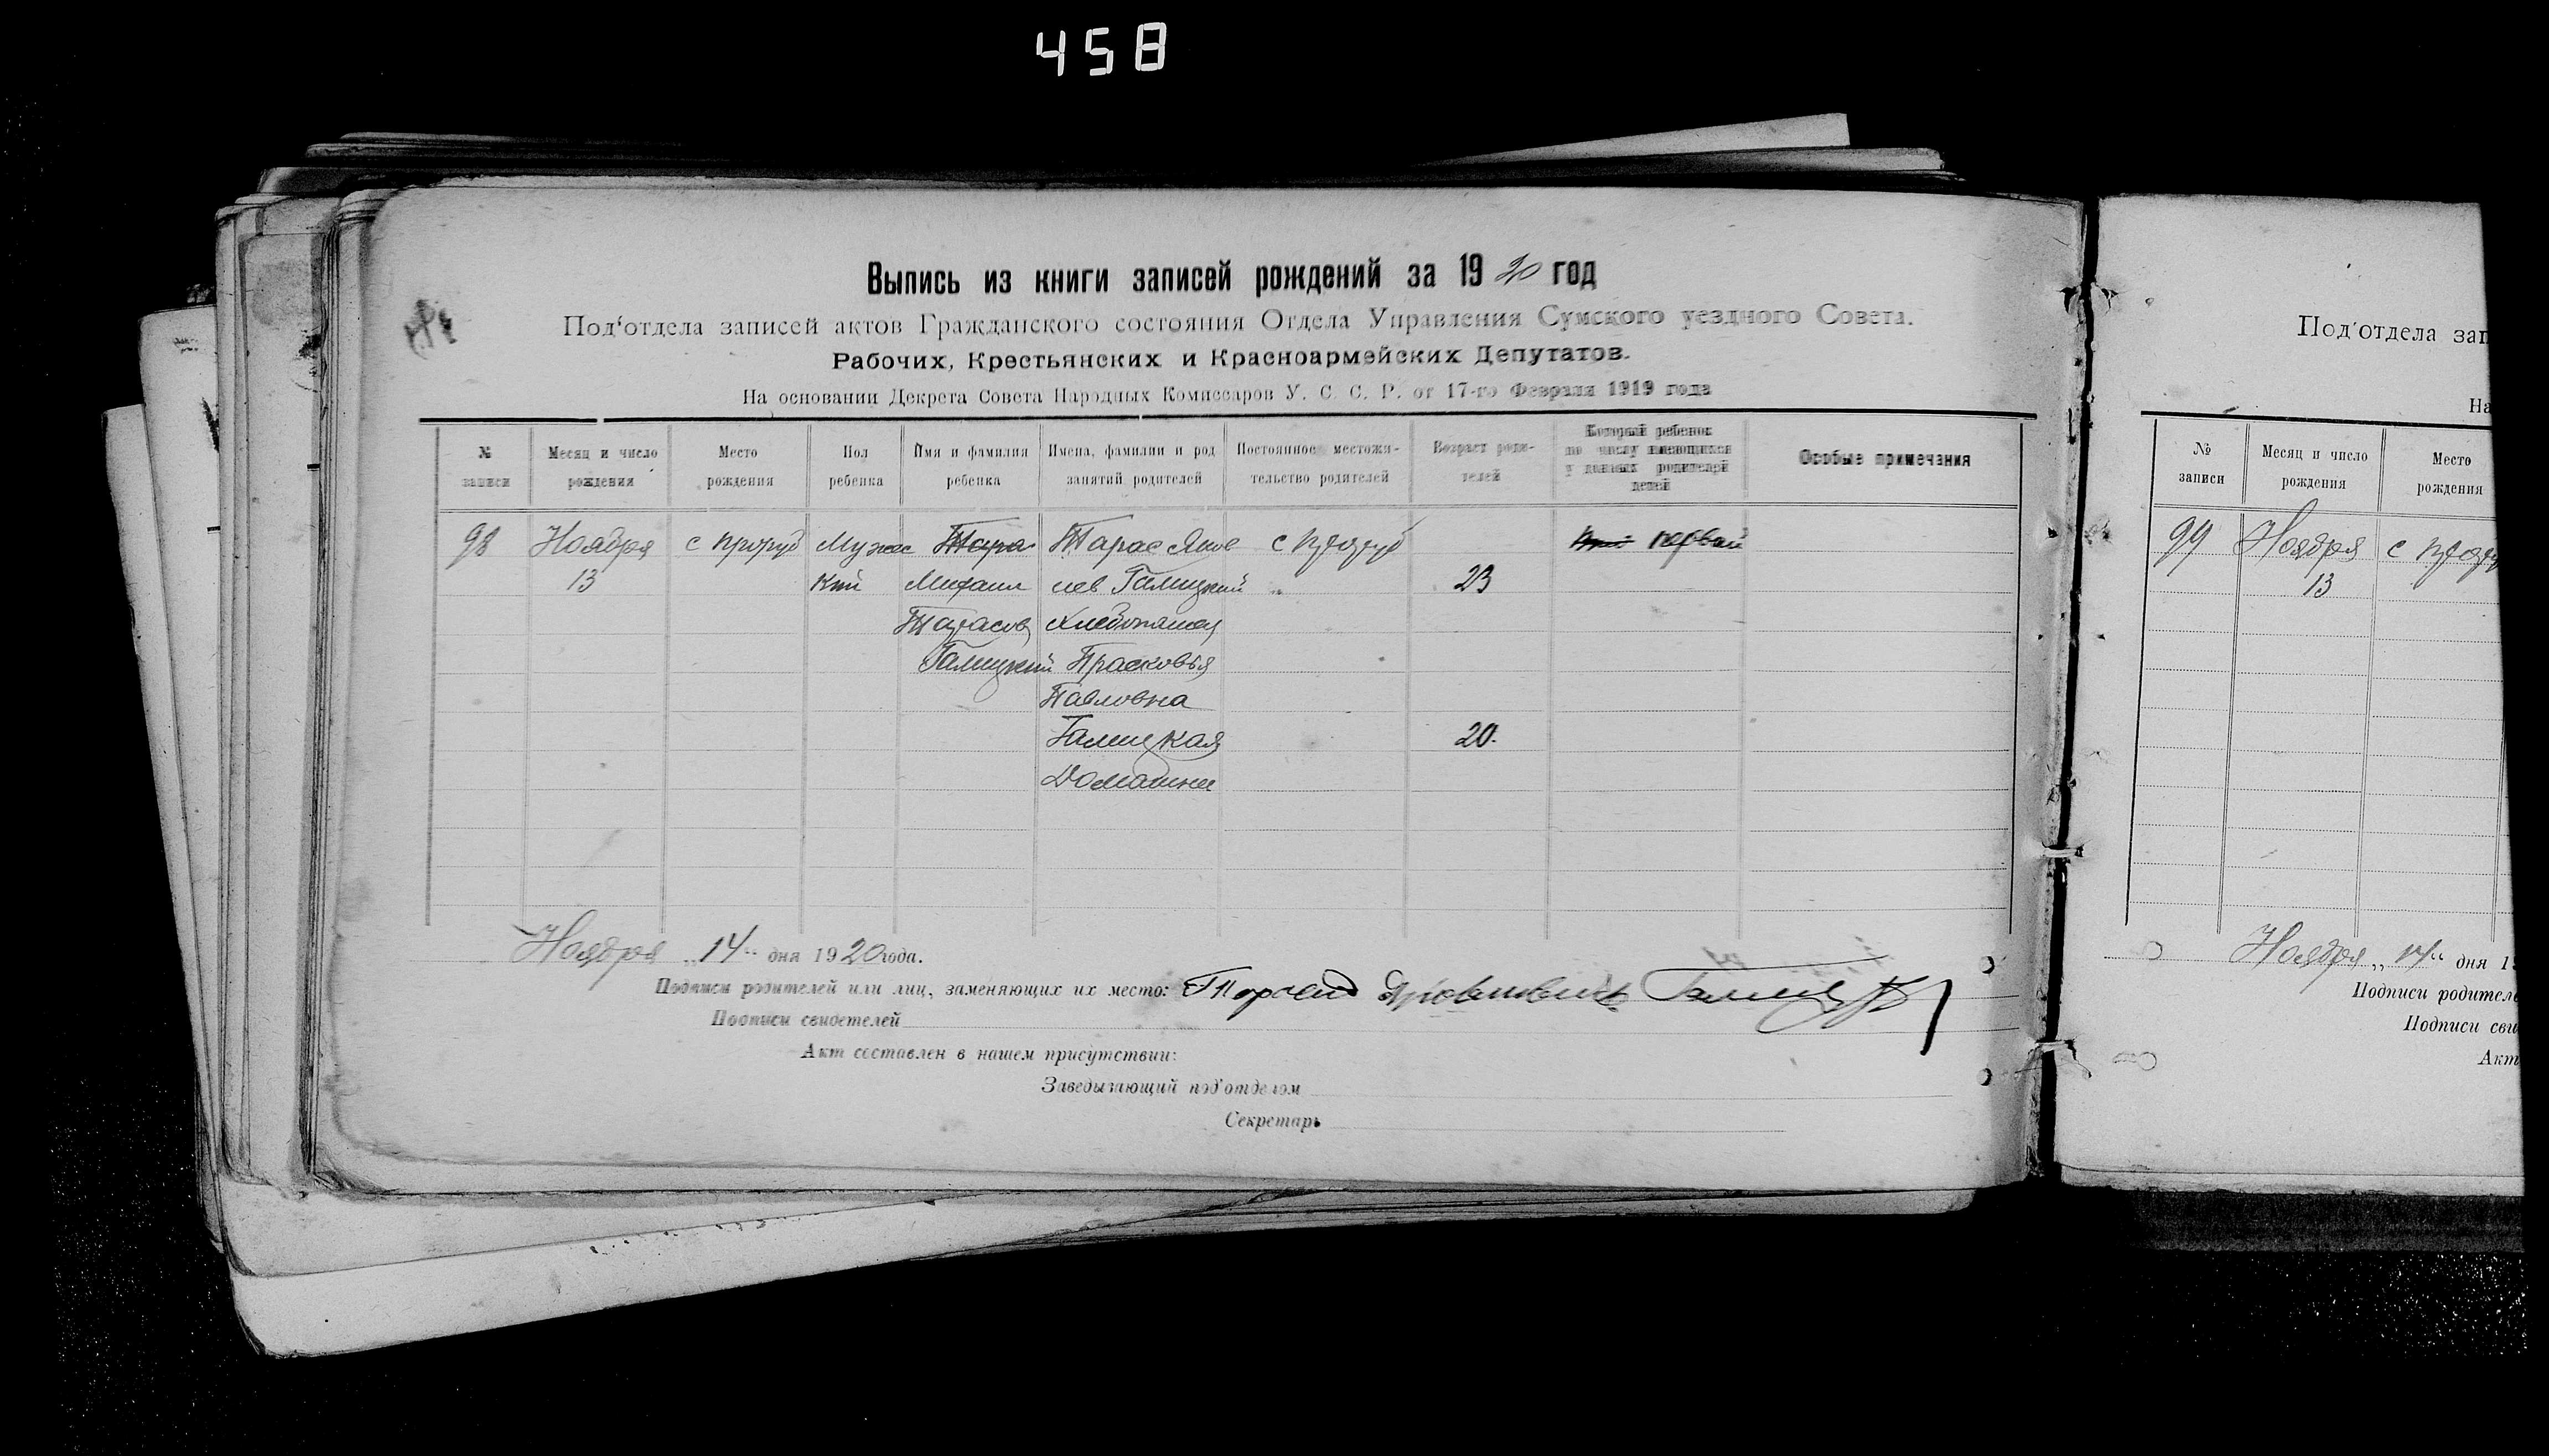 458
Выпись из книги записей рождений за 1920 год
Под‘отдела записей актов Гражданского состояния Отдела Управления Сумского уездного Совета.
Рабочих, Крестьянских и Красноармейских Депутатов.
На основании Декрета Совета Народных Комиссаров У. С. С. Р. от 17-го Февраля 1919 года
№ записи
Месяц и число рождения
Место рождения
Пол ребенка
Имя и фамилия ребенка
Имена, фамилии и род занятий родителей
Постоянное местожи-
тельство родителей
Возраст роди-
телей
Который ребенок
по числу имеющихся
у данных родителей
детей
Особые примечания
98
Ноября
13
с Проруб
Мужес
кий
Тара
Михаил
Тарасов
Галицкий
Тарас Яков
лев Галицкий
Хлебопашец
Прасковья
Павловна
Галицкая
Домашнее
с Проруб
23
20.
первый
Ноября „14“ дня 1920 года.
Подписи родителей или лиц, заменяющих их место:
Подписи свидетелей
Акт составлен в нашем присутствии:
Заведывающий под‘отделом
Секретарь
Под‘отдела зап
На
№ записи
Месяц и число рождения
Место рождения
99
Ноября
13
с
Ноября „14“ дня 1
Подписи родителе
Подписи сви
Акт